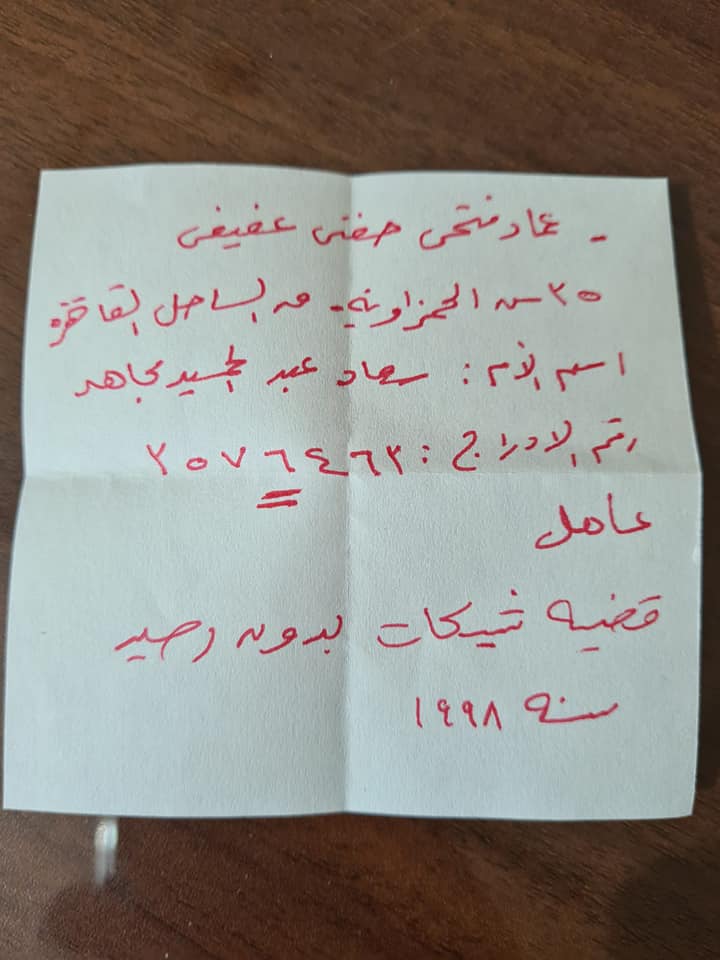 - عماد فتحى حفنى عفيفى
٣٥ ش الحمزاوية - الساحل القاهرة
اسم الأم : سعاد عبد الحميد مجاهد
رقم الادراج : ٢٥٧٦٤٦٣
عامل
قضية شيكات بدون رصيد
سنة ١٩٩٨